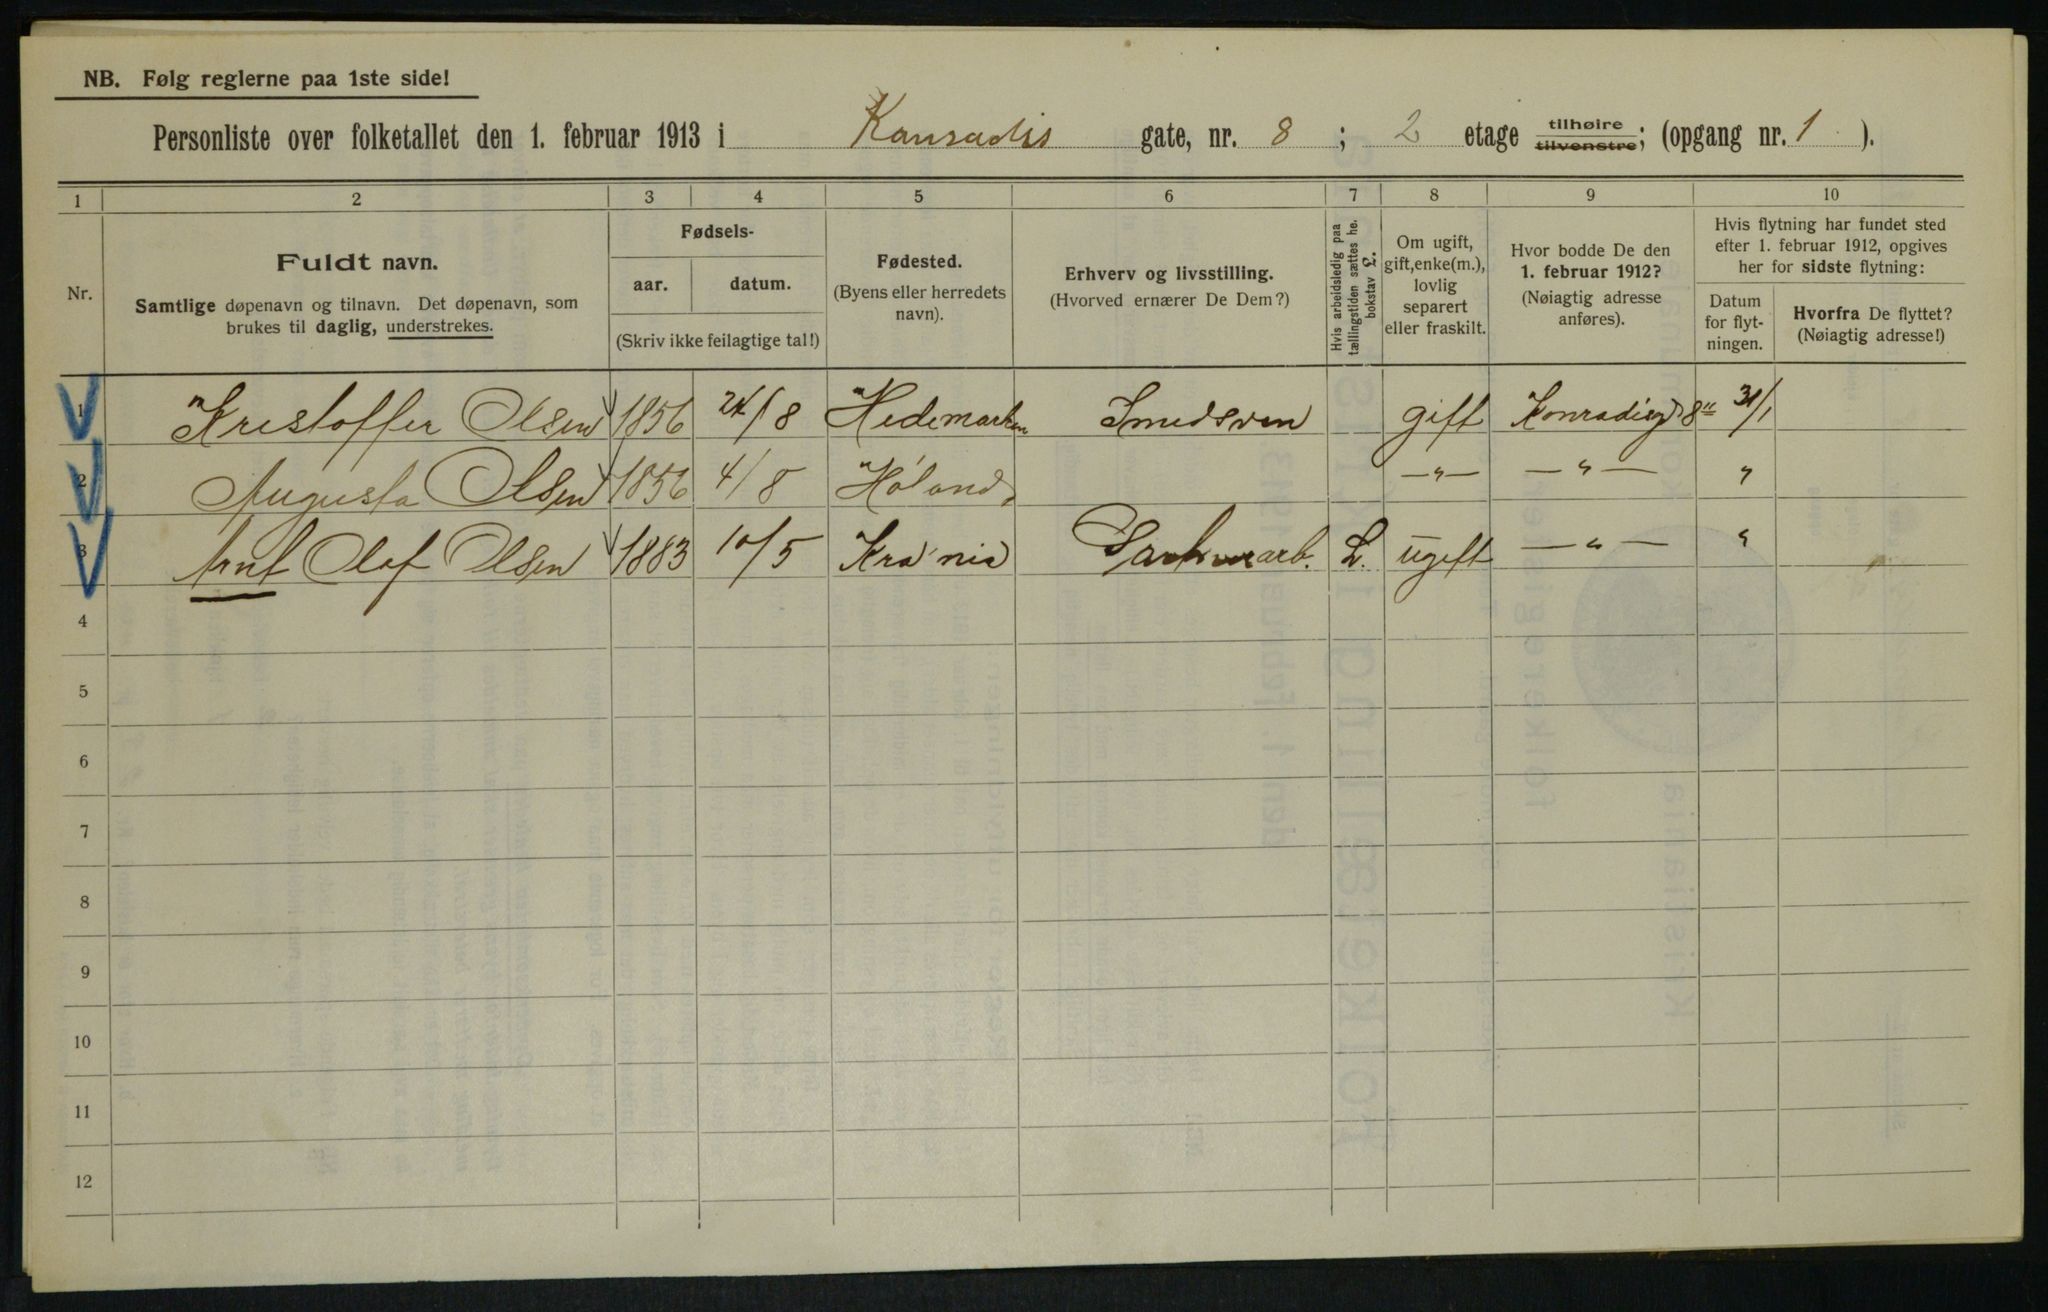 NB. Følg reglerne paa 1ste side!
Personliste over folketallet den 1. februar 1913 i Kansadis gate, nr. 8 ; 2 etage tilhøire tilvenstre; (opgang nr. 1 ).
1 2 3 4 5 6 7 8 9 10
Nr.
Fuldt navn.
Samtlige døpenavn og tilnavn. Det døpenavn, som
brukes til daglig, understrekes.
Fødsels-
aar. datum.
(Skriv ikke feilagtige tal!)
Fødested.
(Byens eller herredets
navn).
Erhverv og livsstilling.
(Hvorved ernærer De Dem?)
Hvis arbeidsledig paa
tællingstiden sættes he.
bokstav L.
Om ugift,
gift, enke(m.),
lovlig
separert
eller fraskilt.
Hvor bodde De den
1. februar 1912?
(Nøiagtig adresse
anføres).
Hvis flytning har fundet sted
efter 1. februar 1912, opgives
her for sidste flytning:
Datum
for flyt-
ningen.
Hvorfra De flyttet?
(Nøiagtig adresse!)
1 Kristoffer Olsen 1856 24/8 Hedemarken Smedsven gift Konradisg 8" 31/1
2 Augusta Olsen 1856 4/8 Høland —"— —"— "
3 Arnt Olaf Olsen 1883 10/5 Kra'nia L. ugift —"— "
4
5
6
7
8
9
10
11
12